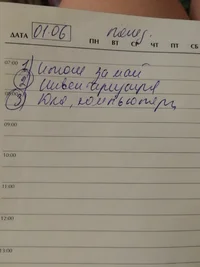 ДАТА 01.06 понед.
ПН ВТ СР ЧТ ПТ СБ
07:00 1) Итоги за май
2)
3) Юля, компьютеры
09:00
10:00
11:00
12:00
13:00